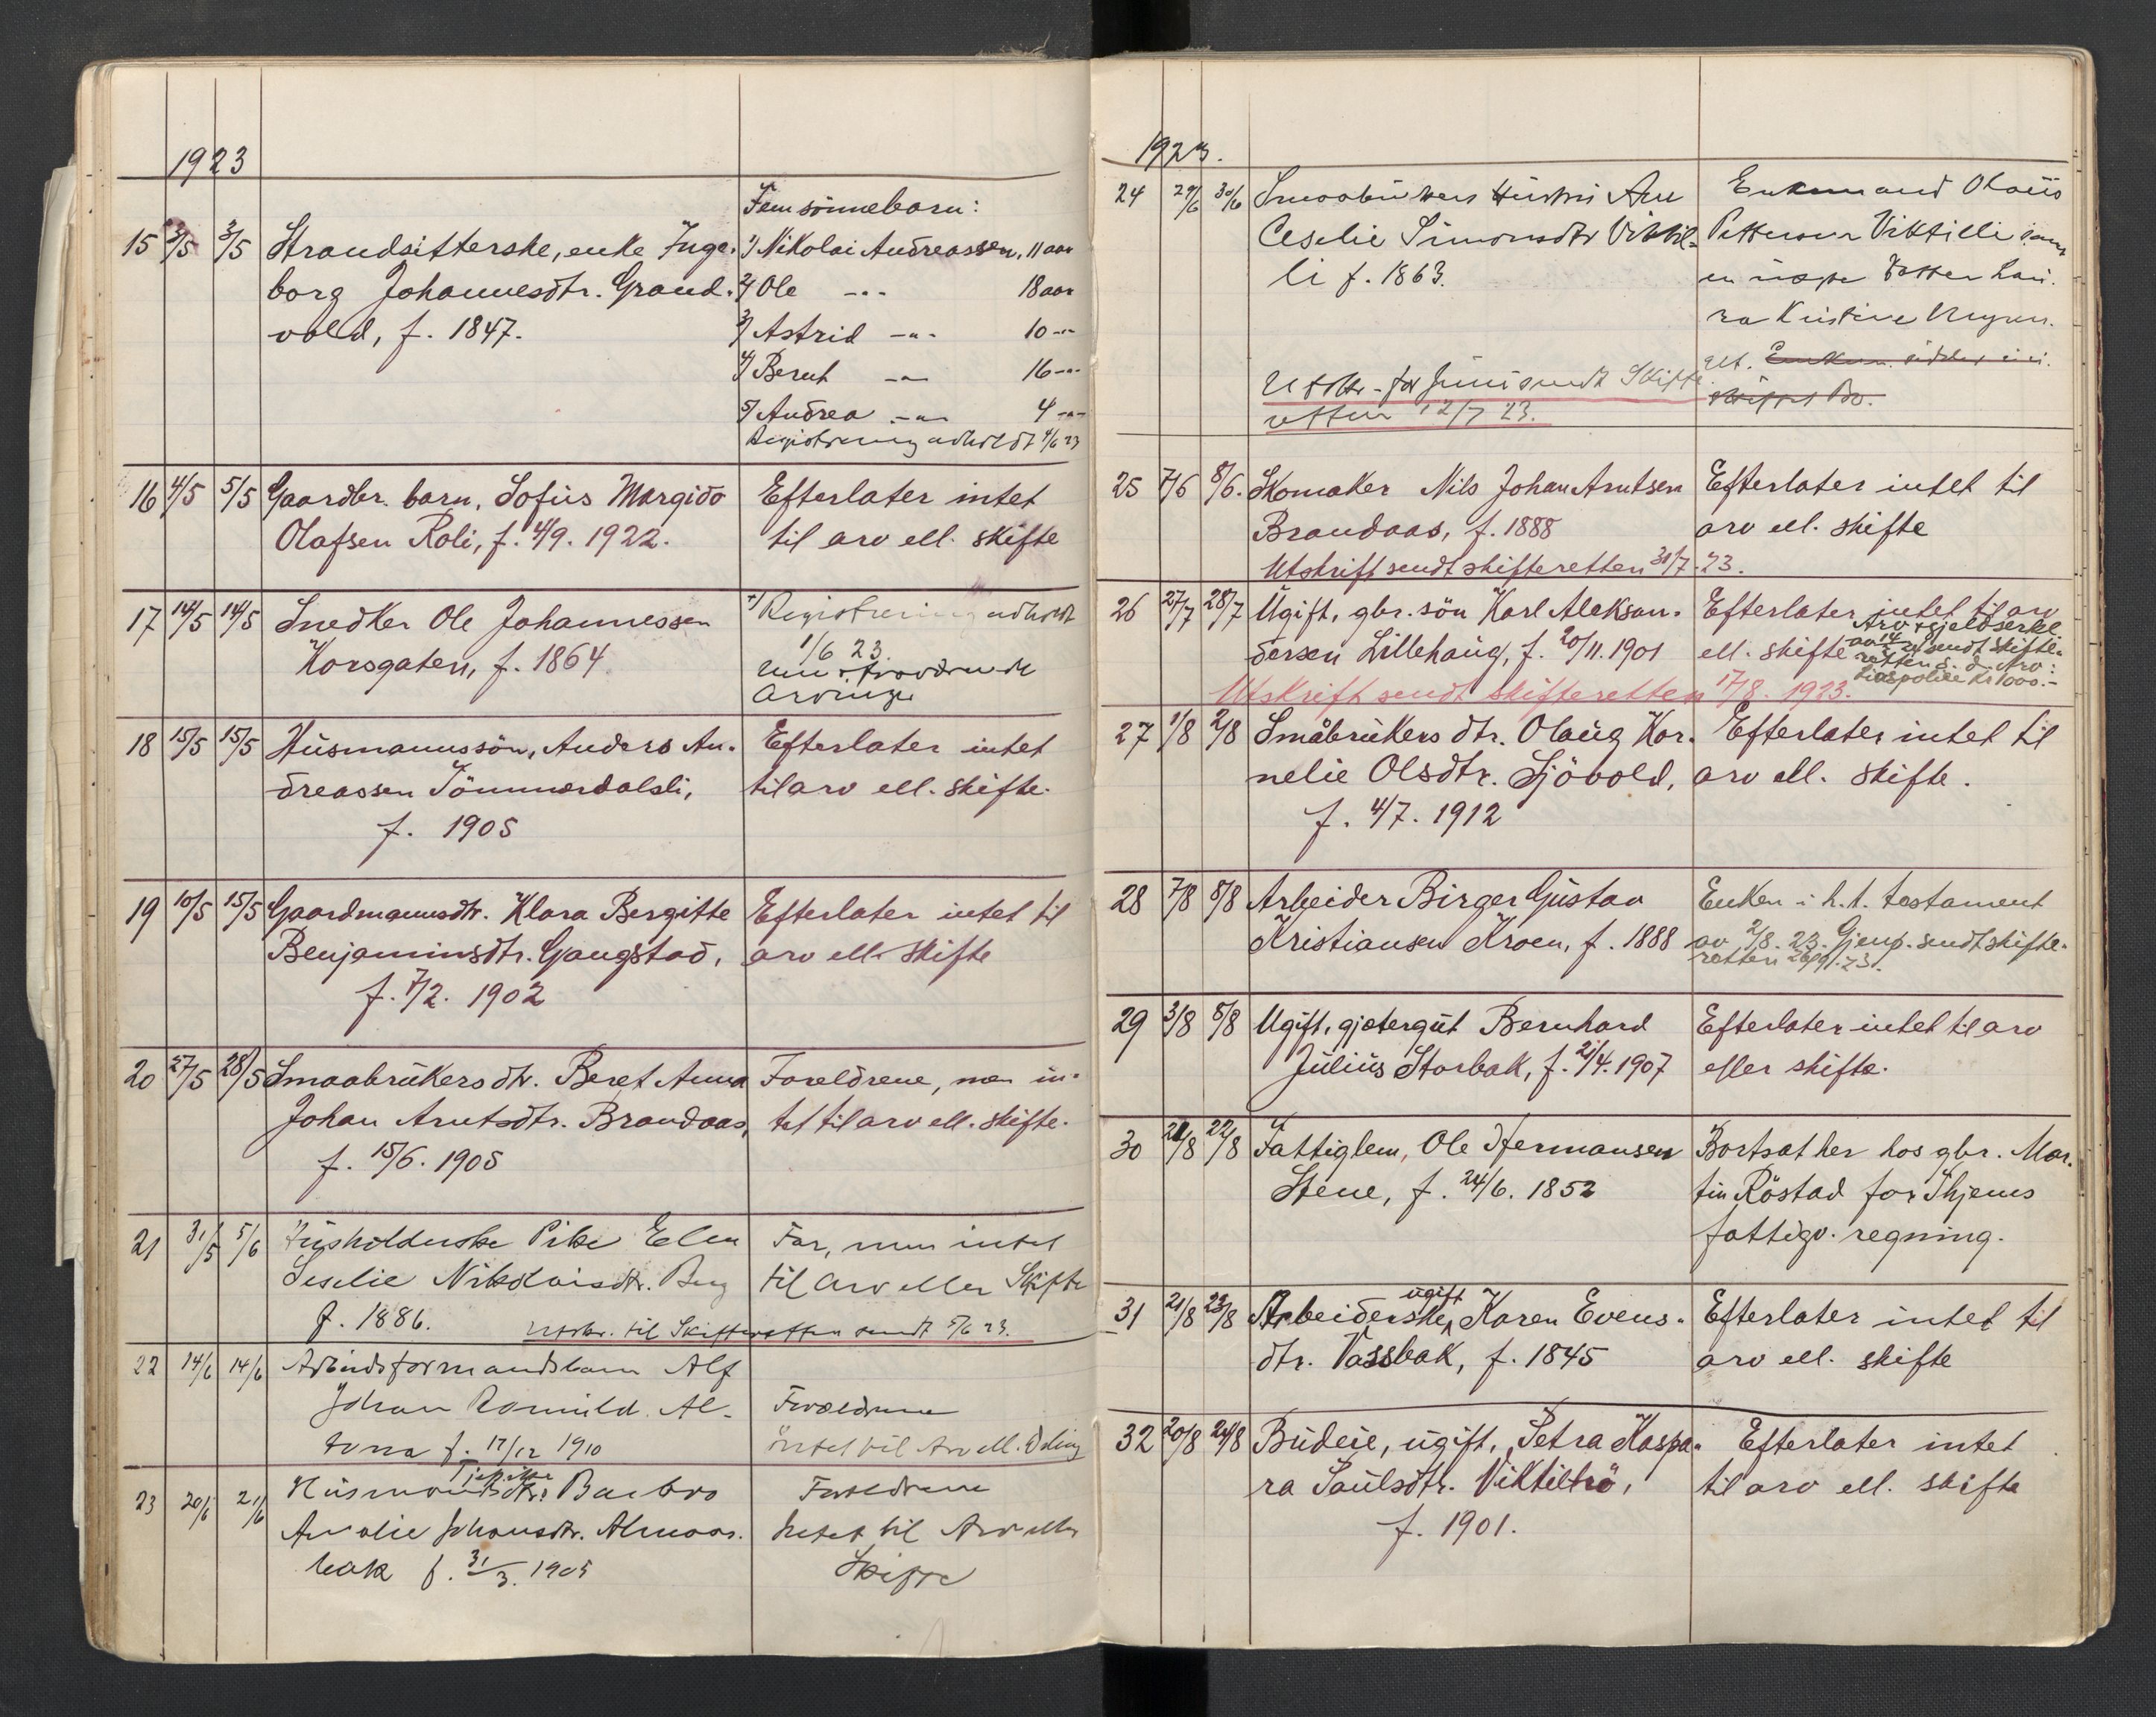 1923
Fem sönnebarn:
15 3/5 3/5 Strandsitterske, enke Inge- 1) Nikolai Andreassen, 11 aar
borg Johannesdtr. Grand- 2) Ole -"- 18 aar
vold, f. 1847. 3) Astrid -"- 10 -"-
4) Berut -"- 16 -"-
5) Andrea -"- 4 -"-
Registrering avholdt 4/6 23
16 4/5 5/5 Gaardbr. barn, Sofus Margido Efterlater intet
Olafsen Roli, f. 4/9. 1922. til arv ell. skifte
17 14/5 14/5 Snedker Ole Johannessen Registrering avholdt
Korsgaten, f. 1864. 1/6 23.
Arvinger
18 15/5 15/5 Husmannssön, Anders An- Efterlater intet
dreassen Tömmerdalsli, til arv ell. skifte.
f. 1905
19 10/5 15/5 Gaardmannsdtr. Klara Bergitte Efterlater intet til
Benjaminsdtr. Gangstad, arv ell. skifte
f. 7/2. 1902
20 27/5 28/5 Smaabrukers dtr. Beret Anna Foreldrene, men in-
Johan Arntsdtr. Brandaas, tet til arv ell. skifte.
f. 15/6. 1905
21 31/5 5/6 Husholderske Pike Elen Far, men intet
Seselie Nikolaisdtr. Berg til arv eller Skifte
f. 1886. Utskr. til Skifteretten sendt 5/6 23.
22 14/6 14/6 Arbeidsformandsbarn Alf
Johan Romuld. Al- Forældrene
tona f. 17/12 1910 intet til Arv ell. Deling
23 20/6 21/6 Husmandsdtr. Barbro Foreldrene
Amalie Johansdtr. Almaas- Intet til Arv eller
bak f. 31/3. 1905 Skifte
1923.
24 29/6 30/6 Smaabrukers Hustru Ane Enkemand Olaus
Ceselie Simonsdtr Viktil- Pettersen Viktilli samt
li f. 1863. en datter Lau-
ra Kristine
gift.
Utskr. for Juni sendt Skifte-
retten 12/7 23.
25 7/6 8/6. Skomaker Nils Johan Arntsen Efterlater intet til
Brandaas, f. 1888 arv ell. skifte
Utskrift sendt skifteretten 31/7. 23.
26 27/7 28/7 Ugift, gbr. sön Karl Aleksan- Efterlater intet til arv
dersen Lillehaug, f. 20/11. 1901 ell. skifte Arv & gjeldserkl.
av 14/ sendt skifte-
retten s. d. Arv:
livspolise kr 1000.-
Utskrift sendt skifteretten 17/8. 1923.
27 1/8 2/8 Småbrukers dtr. Olaug Kor- Efterlater intet til
nelie Olsdtr. Sjövold, arv ell. skifte.
f. 4/7. 1912
28 7/8 8/8 Arbeider Birger Gustav Enken i h. t. testament
Kristiansen Kroen, f. 1888 av 2/8. 23. Gjenp. sendt skifte-
retten 26/9. 23.
29 3/8 8/8 Ugift, gjetergut Bernhard Efterlater intet til arv
Julius Storbak, f. 21/4. 1907 eller skifte.
30 21/8 22/8 Fattiglem, Ole Hermansen Bortsat her hos gbr. Mar-
Stene, f. 24/6. 1852 tin Röstad for Thjems
fattigv. regning.
31 21/8 23/8 Arbeiderske, ugift Karen Evens- Efterlater intet til
dtr. Vassbak, f. 1845 arv ell. skifte
32 20/8 24/8 Budeie, ugift, Petra Kaspa- Efterlater intet
ra Paulsdtr. Viktiltrö, til arv ell. skifte
f. 1901.